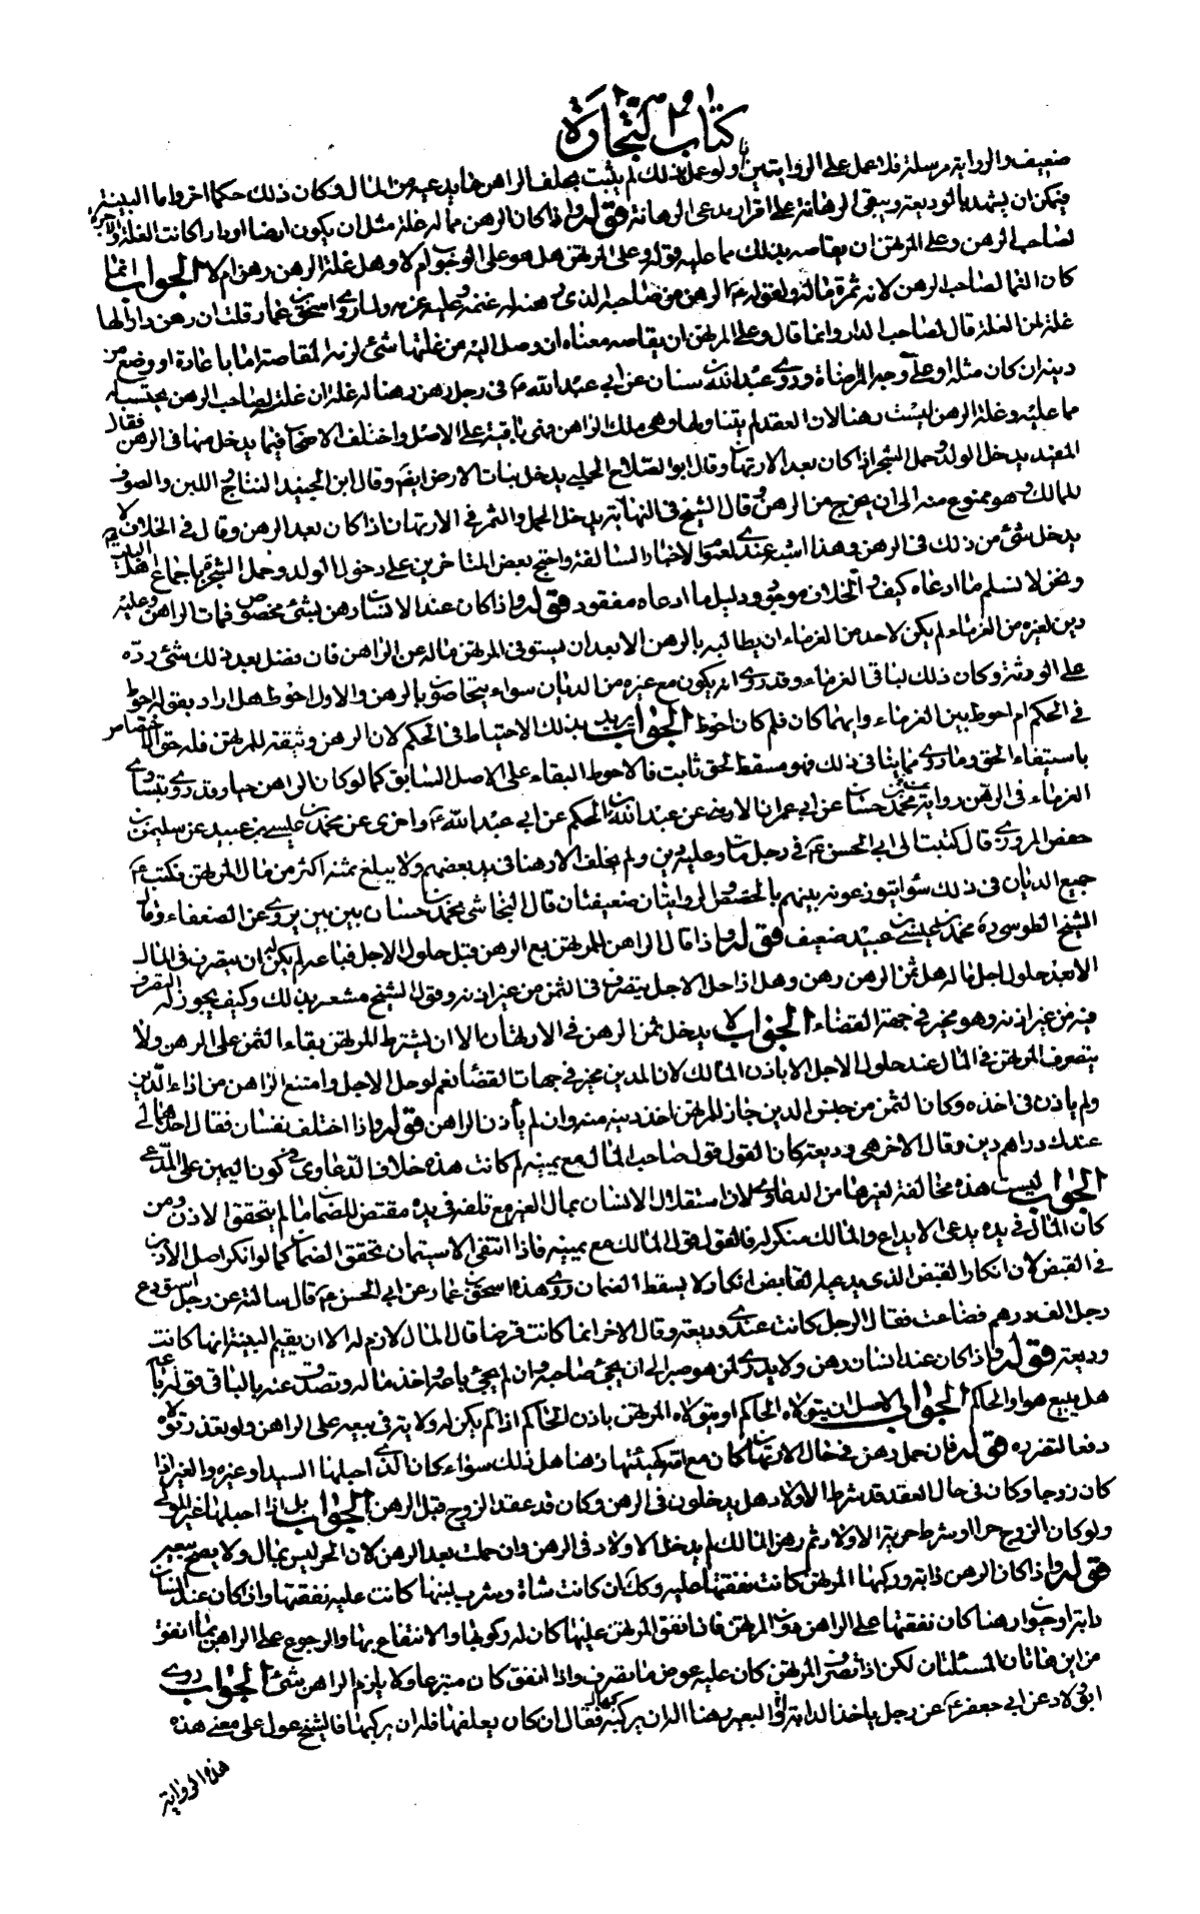 كتاب التجارة
ضعيف والرواية مرسلة فلا عمل على الروايتين ولو عمل بذلك لم يثبت بحلف الراهن ما يدعيه من المال وكان ذلك حكما اخر واما البينة
فيمكن ان يشهد بالوديعة ويبقى الرهانة على اقرار يدعى الرهانة قوله واذا كان الرهن مما له غلة مثل ان يكون ارضا او دارا كانت الغلة والاجرة
لصاحب الرهن وعلى المرتهن ان يقاصه بذلك مما عليه قوله وعلى المرتهن هل هو على الوجوب ام لا وهل غلة الرهن رهن ام لا الجواب انما
كان النما لصاحب الرهن لانه ثمرة ماله ولقوله ع الرهن من صاحبه الذى رهنه له غنمه وعليه غرمه ولما روى اسحق بن عمار قلت ان رهن دارا لها
غلة لمن الغلة قال لصاحب الدار وانما قال وعلى المرتهن ان يقاصه معناه ان وصل اليه من غلتها شئ لزمه المقاصة اما باعادة او وضع من
دينه ان كان مثله او على وجه المراضاة وروى عبد الله بن سنان عن ابى عبد الله ع فى رجل رهن رهنا له غلة ان غلته لصاحب الرهن يحتسب له
مما عليه وغلة الرهن ليست رهنا لان العقد لم يتناولها وهى ملك الراهن فهى باقية على الاصل واختلف الاصحاب فيما يدخل منها فى الرهن فقال
المفيد يدخل الولد وحمل الشجر اذا كان بعد الارتهان وقال ابو الصلاح الحلبى يدخل نبات الارض ايضا وقال ابن الجنيد النتاج واللبن والصوف
للمالك وهو ممنوع منه الى ان يخرج من الرهن وقال الشيخ فى النهاية يدخل الحمل والثمر فى الارتهان اذا كان بعد الرهن وقال فى الخلاف لا
يدخل شئ من ذلك فى الرهن وهذا اشبه عندى لعموم الاخبار السالفة واحتج بعض المتاخرين على دخول الولد وحمل الشجرة باجماع اهل البيت ع
ونحن لا نسلم ما ادعاه كيف والخلاف موجود ودليل ما ادعاه مفقود قوله واذا كان عند الانسان رهن بشئ مخصوص فمات الراهن وعليه
دين لغيره من الغرماء لم يكن لاحد من الغرماء ان يطالبه بالرهن الا بعد ان يستوفى المرتهن ماله عن الراهن فان فضل بعد ذلك شئ رده
على الورثة وكان ذلك لباقى الغرماء وقد روى انه يكون مع غيره من الديان سواء يتحاصون بالرهن والاول احوط هل اراد بقوله احوط
فى الحكم ام احوط بين الغرماء وايهما كان فلم كان احوط الجواب يريد بذلك الاحتياط فى الحكم لان الرهن وثيقة للمرتهن فله حق الاختصاص
باستيفاء الحق وما روى مما ينافى ذلك فهو مسقط لحق ثابت فالاحوط البقاء على الاصل السابق كما لو كان الراهن حيا وقد روى بتساوى
الغرماء فى الرهن رواية محمد بن حسان عن ابى عمران الارمنى عن عبد الله بن الحكم عن ابى عبد الله ع واخرى عن محمد بن عيسى بن عبيد عن سليمن بن
حفص المروزى قال كتبت الى ابى الحسن ع فى رجل مات وعليه دين ولم يخلف الا رهنا فى يد بعضهم ولا يبلغ ثمنه اكثر من مال المرتهن فكتب ع
جميع الديان فى ذلك سواء يتوزعونه بينهم بالحصص والروايتان ضعيفتان قال النجاشى محمد بن حسان بين بين يروى عن الضعفاء وقال
الشيخ الطوسى ره محمد بن عيسى بن عبيد ضعيف قوله واذا قال الراهن للمرتهن بع الرهن قبل حلول الاجل فباعه لم يكن له ان يتصرف فى المال
الا بعد حلول اجل ماله هل ثمن الرهن رهن وهل اذا حل الاجل يتصرف فى الثمن من غير اذنه وقول الشيخ مشعر بذلك وكيف يجوز له التصرف
فيه من غير اذنه وهو مخير فى جهة القضاء الجواب لا يدخل ثمن الرهن فى الارتهان الا ان يشترط المرتهن بقاء الثمن على الرهن ولا
يتصرف المرتهن فى المال عند حلول الاجل الا باذن المالك لان المدين مخير فى جهات القضا نعم لو حل الاجل وامتنع الراهن من اداء الدين
ولم ياذن فى اخذه وكان الثمن من جنس الدين جاز للمرتهن اخذ دينه منه وان لم يأذن الراهن قوله واذا اختلف نفسان فقال احدهما لى
عندك دراهم دين وقال الاخر هى وديعة كان القول قول صاحب المال مع يمينه لم كانت هذه خلاف الدعاوى فى كون اليمين على المدعى
الجواب ليست هذه مخالفة لغيرها من الدعاوى لان استقلال الانسان بمال الغير مع تلفه فى يده مقتض للضمان ما لم يتحقق الاذن ومن
كان المال فى يده يدعى الايداع والمالك منكر له فالقول قول المالك مع يمينه فاذا انتفى الاستيمان تحقق الضمان كما لو انكر اصل الاذن
فى القبض لان انكار القبض الذى يدعيه القابض انكار لا يسقط الضمان روى هذه اسحق بن عمار عن ابى الحسن ع قال سالته عن رجل استودع
رجل الف درهم فضاعت فقال الرجل كانت عندى وديعة وقال الاخر انما كانت قرضا قال المال لازم له الا ان يقيم البينة انها كانت
وديعة قوله واذا كان عند انسان رهن ولا يدرى لمن هو صبر الى ان يجئ صاحبه فان لم يجئ باعه واخذ ماله وتصدق عنه بالباقى قوله باعه
هل يبيع هو او الحاكم الجواب الاصل ان يتولاه الحاكم او يتولاه المرتهن باذن الحاكم اذا لم يكن له ولاية فى بيعه على الراهن ولو تعذر تولاه
دفعا لتضرره قوله فان حمل رهن فى حال الارتهان كان مع امه كهيئتها رهنا هل ذلك سواء كان الذى احبلها السيد او غيره والغير اذا
كان زوجا وكان فى حال العقد قد شرط الاولاد هل يدخلون فى الرهن وكان قد عقد الزوج قبل الرهن الجواب بل اذا احبلها غير المولى
ولو كان الزوج حرا او شرط حرية الاولاد ثم رهن المالك لم يدخل الاولاد فى الرهن وان حملت بعد الرهن لان الحر ليس بمال ولا يصح بيعه
قوله واذا كان الرهن دابة وركبها المرتهن كانت نفقتها عليه وكك ان كانت شاة وشرب لبنها كانت عليه نفقتها واذا كان عند انسان
دابة او حيوان رهنا كان نفقتها على الراهن دون المرتهن فان انفق المرتهن عليها كان له ركوبها والانتفاع بها والرجوع على الراهن بما انفق
من اين هاتان المسئلتان لكن اذا تصرف المرتهن كان عليه عوض ما تصرف واذا انفق كان متبرعا ولا يلزم الراهن شئ الجواب روى
ابو ولاد عن ابى جعفر ع عن رجل ياخذ الدابة او البعير رهنا اله ان يركبه فقال ان كان يعلفها فله ان يركبها فالشيخ عول على معنى هذه
هذه الرواية